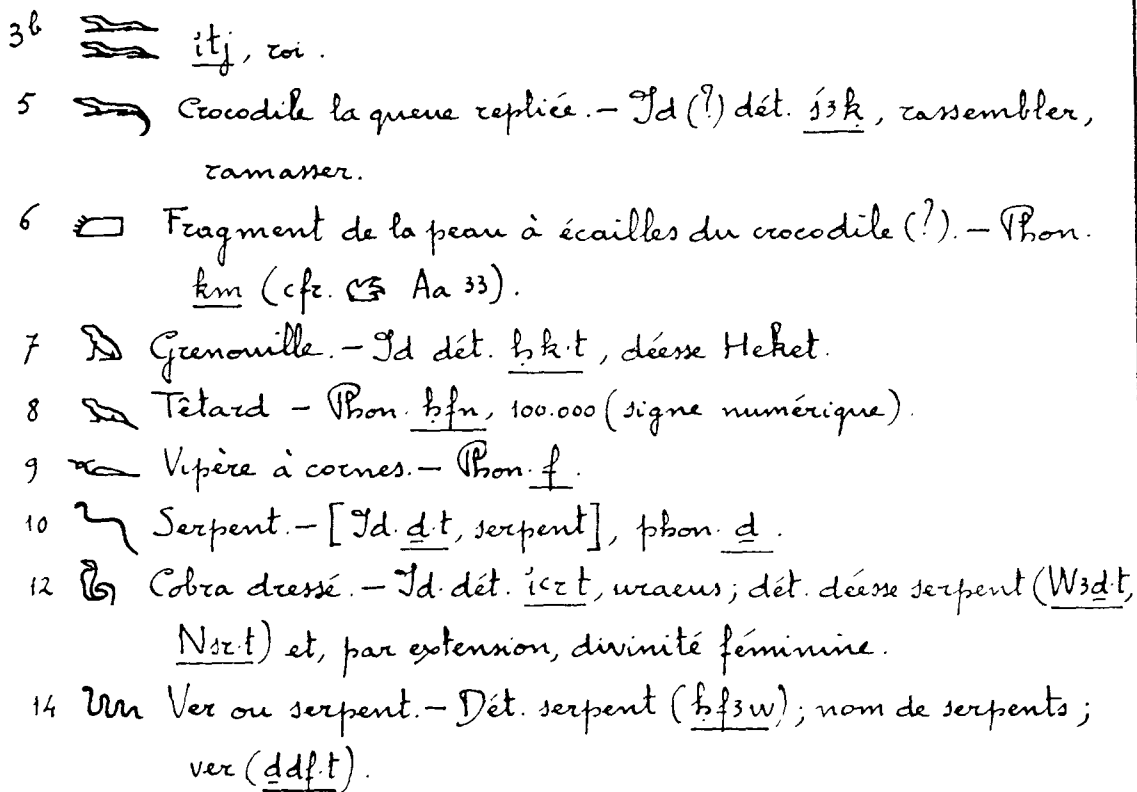 3b 𓆊𓆊 ỉtj, roi.
5 𓆌 Crocodile la queue repliée. – Id (?) dét. ś3ḳ, rassembler,
ramasser.
6 𓆎 Fragment de la peau à écailles du crocodile (?). – Phon.
km (cfr. Aa 33).
7 𓆏 Grenouille. – Id dét. ḥḳ·t, déesse Heket.
8 𓆐 Têtard – Phon. ḥfn, 100.000 (signe numérique).
9 𓆑 Vipère à cornes. – Phon. f.
10 𓆓 Serpent. – [Id. ḏ·t, serpent], phon. ḏ.
12 𓆗 Cobra dressé. – Id. dét. ỉʿr·t, uraeus; dét. déesse serpent (W3ḏ·t,
Nsr·t) et, par extension, divinité féminine.
14 𓆙 Ver ou serpent. – Dét. serpent (ḥf3w); nom de serpents;
ver (ḏdf·t).